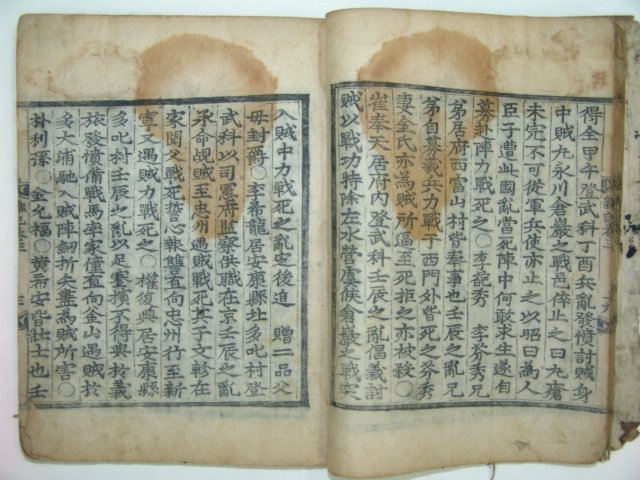 得全甲午登武科丁酉兵亂發憤討賊身
中賊丸永川倉巖之戰邑倅止之曰丸瘡
未完不可從軍兵使亦止之以昭曰爲人
臣子遭此國亂當死陣中何敢求生遂自
募赴陣力戰死之○李 秀 李芬秀兄
弟居府西富山村皆奉事也壬辰之亂兄
弟自募義兵力戰于西門外皆死之芬秀
妻金氏亦爲賊所逼至死拒之亦被殺○
崔奉天居府內登武科壬辰之亂倡義討
賊以戰功特除左水營虞候倉巖之戰突
入賊中力戰死之亂定後追 贈二品父
母封爵○李希龍居安康縣北多叱村登
武科以司憲府監察供職在京壬辰之亂
承命覘賊至忠州遇賊戰死其子文軫在
家聞父戰死誓心報讐直向忠州行至新
寧又遇賊力戰死之○權復興居安康縣
多叱村壬辰之亂以足蹇攣不得與於義
旅發憤備戰馬率家僮直向釜山遇賊於
多大浦馳入賊陣劒折矢盡爲賊所害○
朴利 ○金允福○黃希安皆壯士也壬